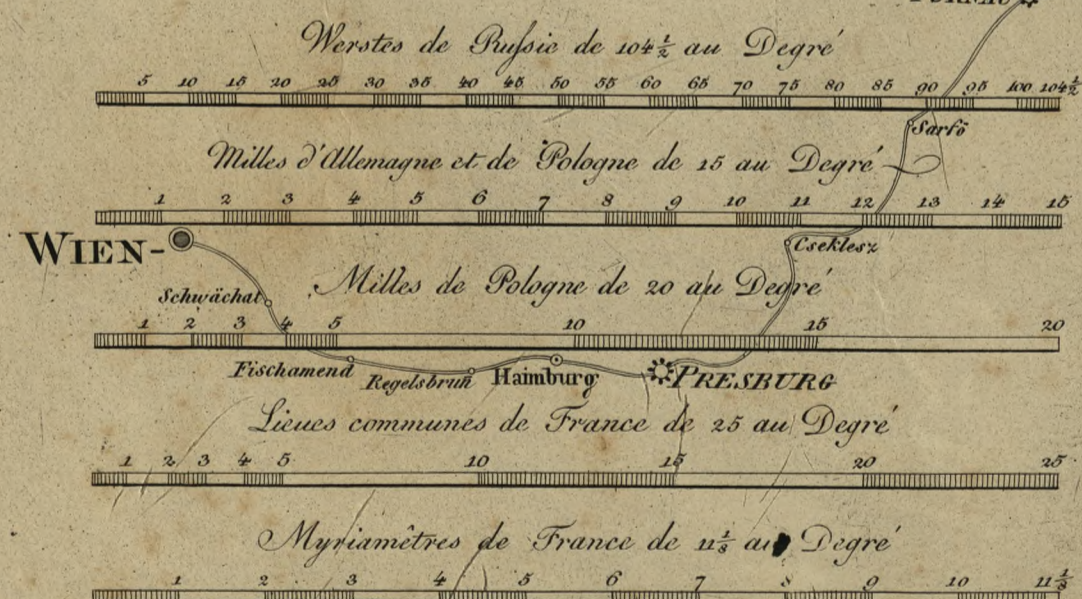 Werstes de Russie de 104 1/2 au Degré
5 10 15 20 25 30 35 40 45 50 55 60 65 70 75 80 85 90 95 100 104 1/2
Sarfö
Milles d'Allemagne et de Pologne de 15 au Degré
1 2 3 4 5 6 7 8 9 10 11 12 13 14 15
WIEN
Cseklesz
Schwächat
Milles de Pologne de 20 au Degré
1 2 3 4 5 10 15 20
Fischamend
Regelsbrun
Haimburg
PRESBURG
Lieues communes de France de 25 au Degré
1 2 3 4 5 10 15 20 25
Myriamêtres de France de 11 1/8 au Degré
1 2 3 4 5 6 7 8 9 10 11 1/8